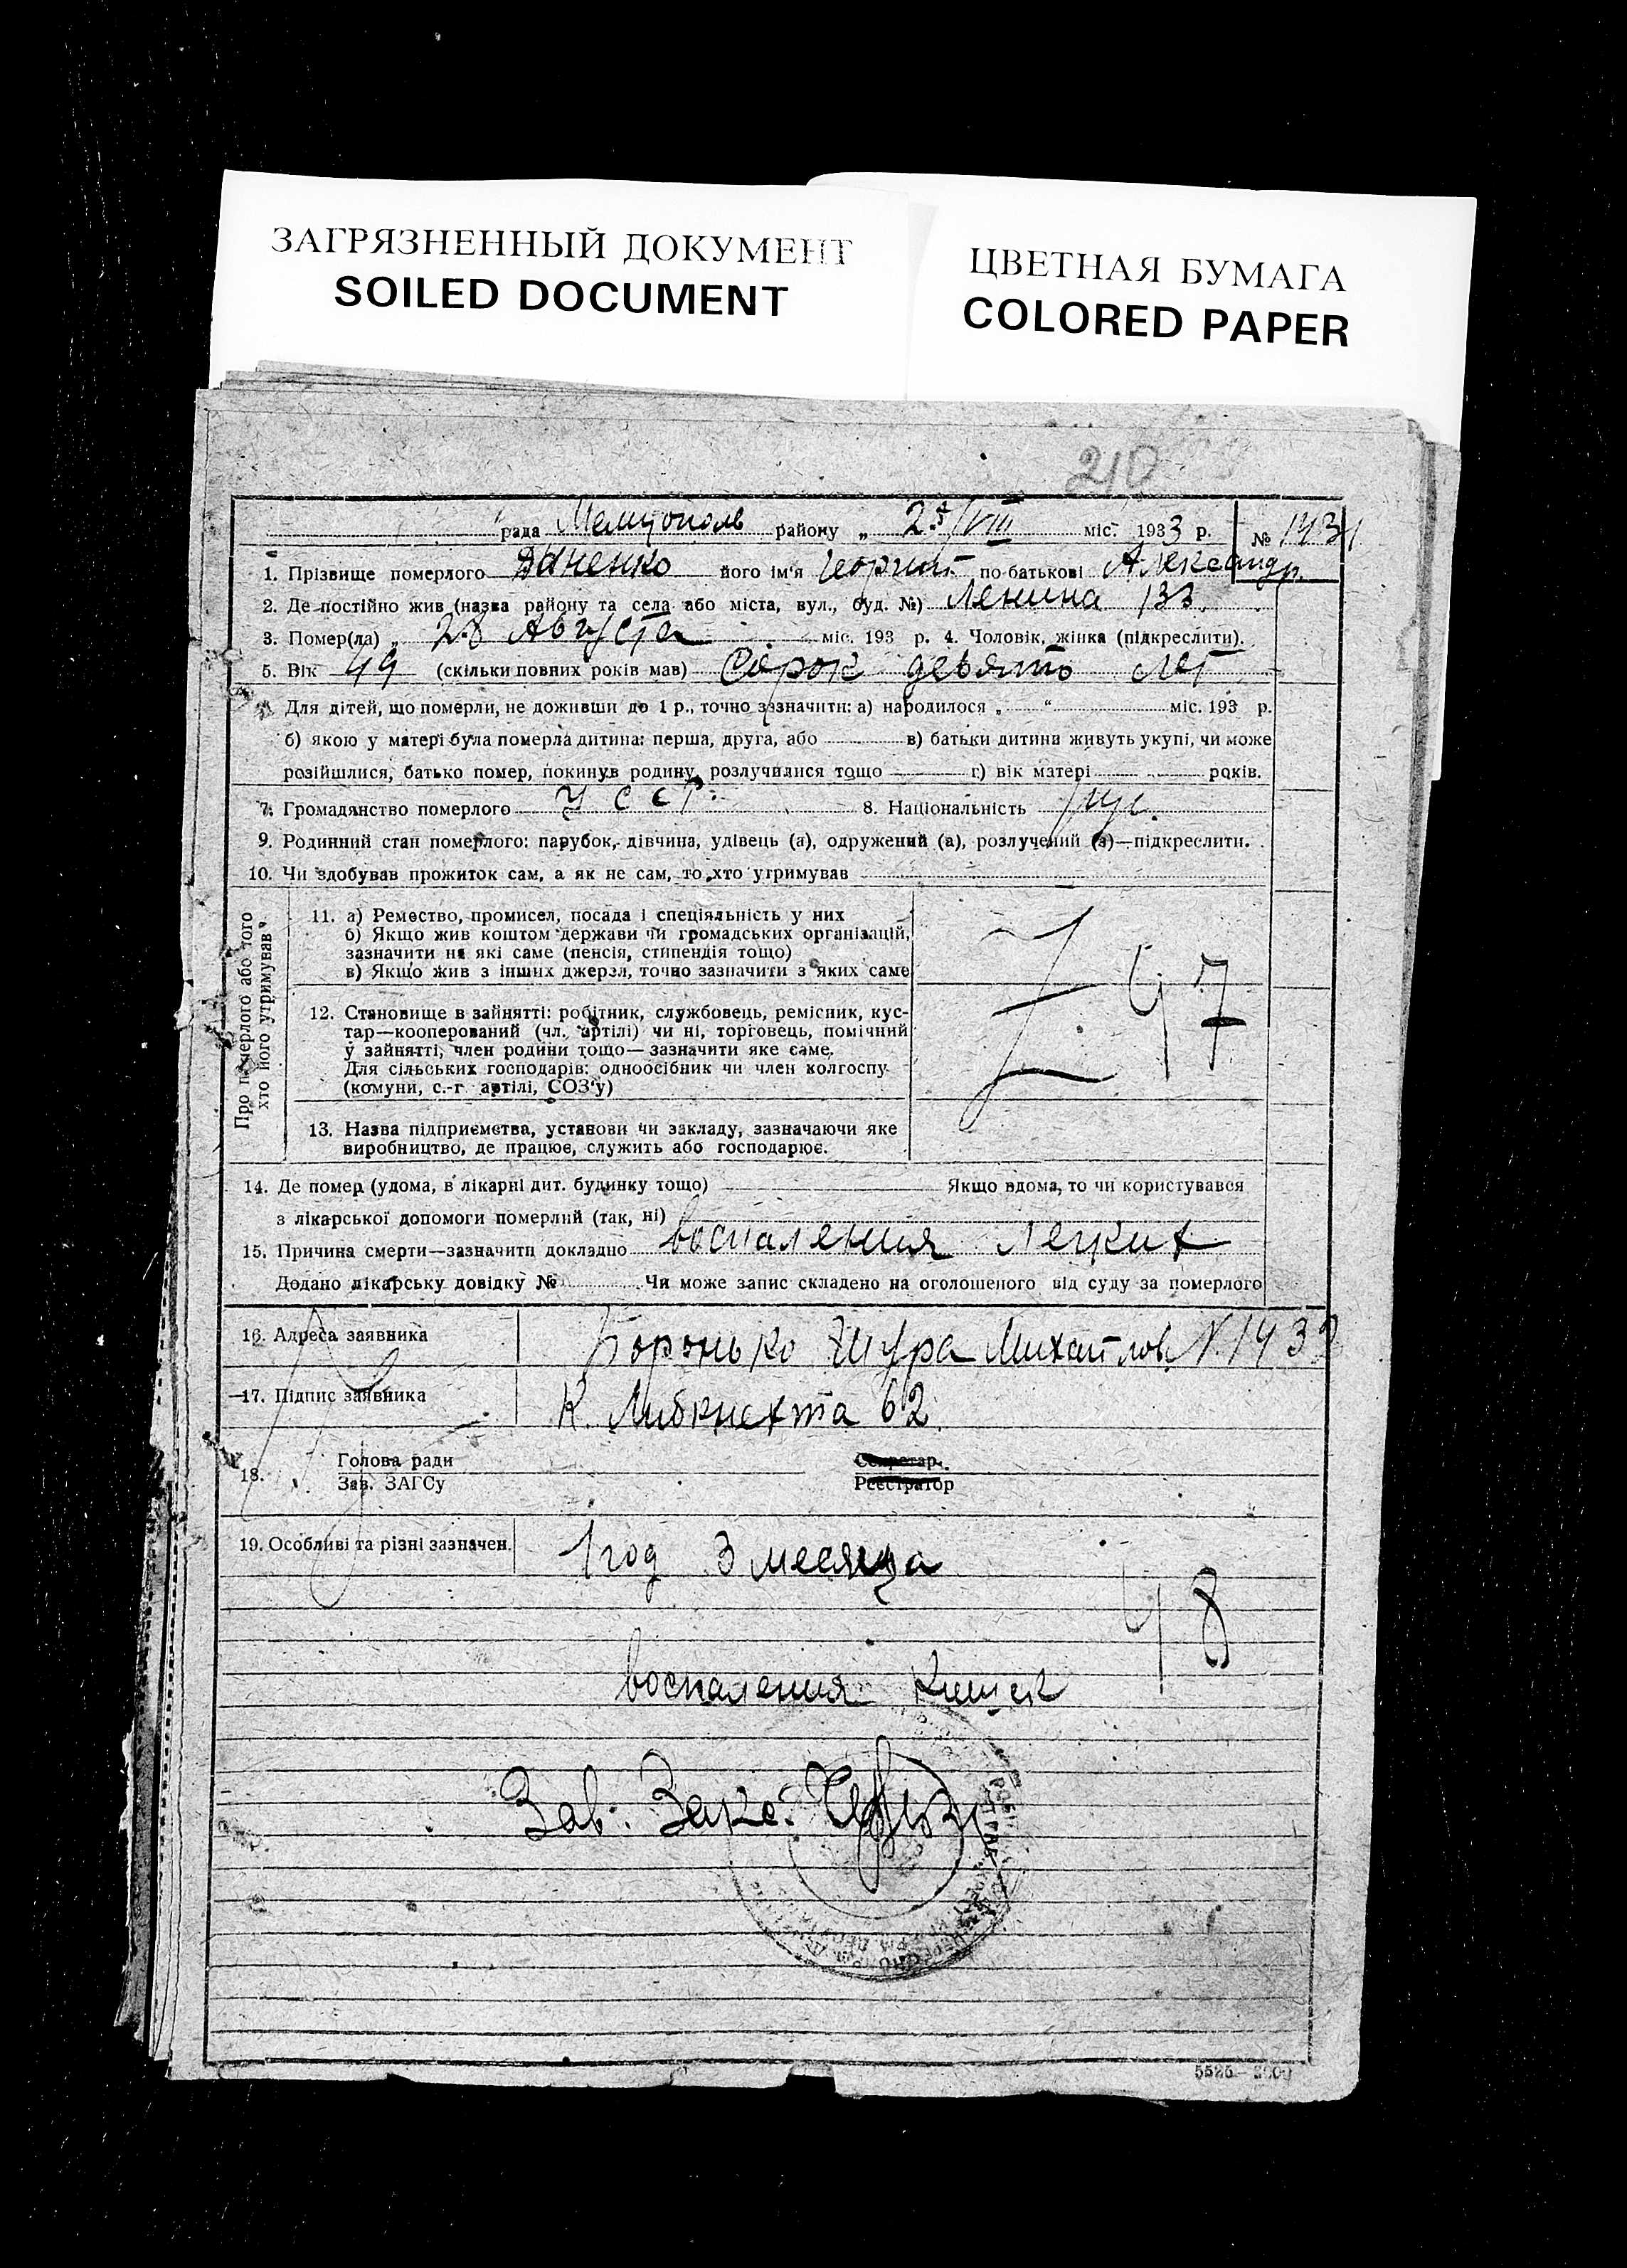 ЗАГРЯЗНЕННЫЙ ДОКУМЕНТ
SOILED DOCUMENT
ЦВЕТНАЯ БУМАГА
COLORED PAPER
210
рада Мелитополь району „ 25/VIII міс. 1933 р. № 1431
1. Прізвище померлого Даненко його ім'я Георгий по батькові Александр.
2. Де постійно жив (назва району та села або міста, вул., буд. №) Ленина 133.
3. Помер(ла) „ 28 Августа міс. 193 р. 4. Чоловік, жінка (підкреслити).
5. Вік 49 (скільки повних років мав) Сорок девять лет
Для дітей, що померли, не доживши до 1 р., точно зазначити: а) народилося „ “ міс. 193 р.
б) якою у матері була померла дитина: перша, друга, або в) батьки дитини живуть укупі, чи може
розійшлися, батько помер, покинув родину, розлучилися тощо г) вік матері років.
7. Громадянство померлого УССР. 8. Національність рус.
9. Родинний стан померлого: парубок, дівчина, удівець (а), одружений (а), розлучений (а)—підкреслити.
10. Чи здобував прожиток сам, а як не сам, то хто утримував
Про померлого або того
хто його утримував"
11. а) Ремество, промисел, посада і спеціяльність у них
б) Якщо жив коштом держави чи громадських організацій,
зазначити на які саме (пенсія, стипендія тощо)
в) Якщо жив з інших джерел, точно зазначити з яких саме
12. Становище в зайнятті: робітник, службовець, ремісник, кус-
тар—кооперований (чл. артілі) чи ні, торговець, помічний
у зайнятті, член родини тощо—зазначити яке саме.
Для сільських господарів: одноосібник чи член колгоспу
(комуни, с.-г артілі, СОЗ'у)
47
13. Назва підприємства, установи чи закладу, зазначаючи яке
виробництво, де працює, служить або господарює.
14. Де помер (удома, в лікарні дит. будинку тощо) Якщо вдома, то чи користувався
з лікарської допомоги померлий (так, ні)
15. Причина смерти—зазначити докладно воспаления Легких
Додано лікарську довідку № Чи може запис складено на оголошеного від суду за померлого
16. Адреса заявника Боронько Шура Михайлов. N 1432
17. Підпис заявника К. Либкнехта 62
18. Голова ради Секретар.
Зав. ЗАГСу Реєстратор
19. Особливі та різні зазначен. 1 год 3 месяца
48
воспаления Кишек
Зав. Загс.
5525—2000